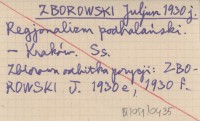 ZBOROWSKI Juljusz 1930 j.
Regjonalizm podhalański.
— Kraków. Ss.
Zbiorowa odbitka pozycji: ZBO-
ROWSKI J. 1930 e, 1930 f.